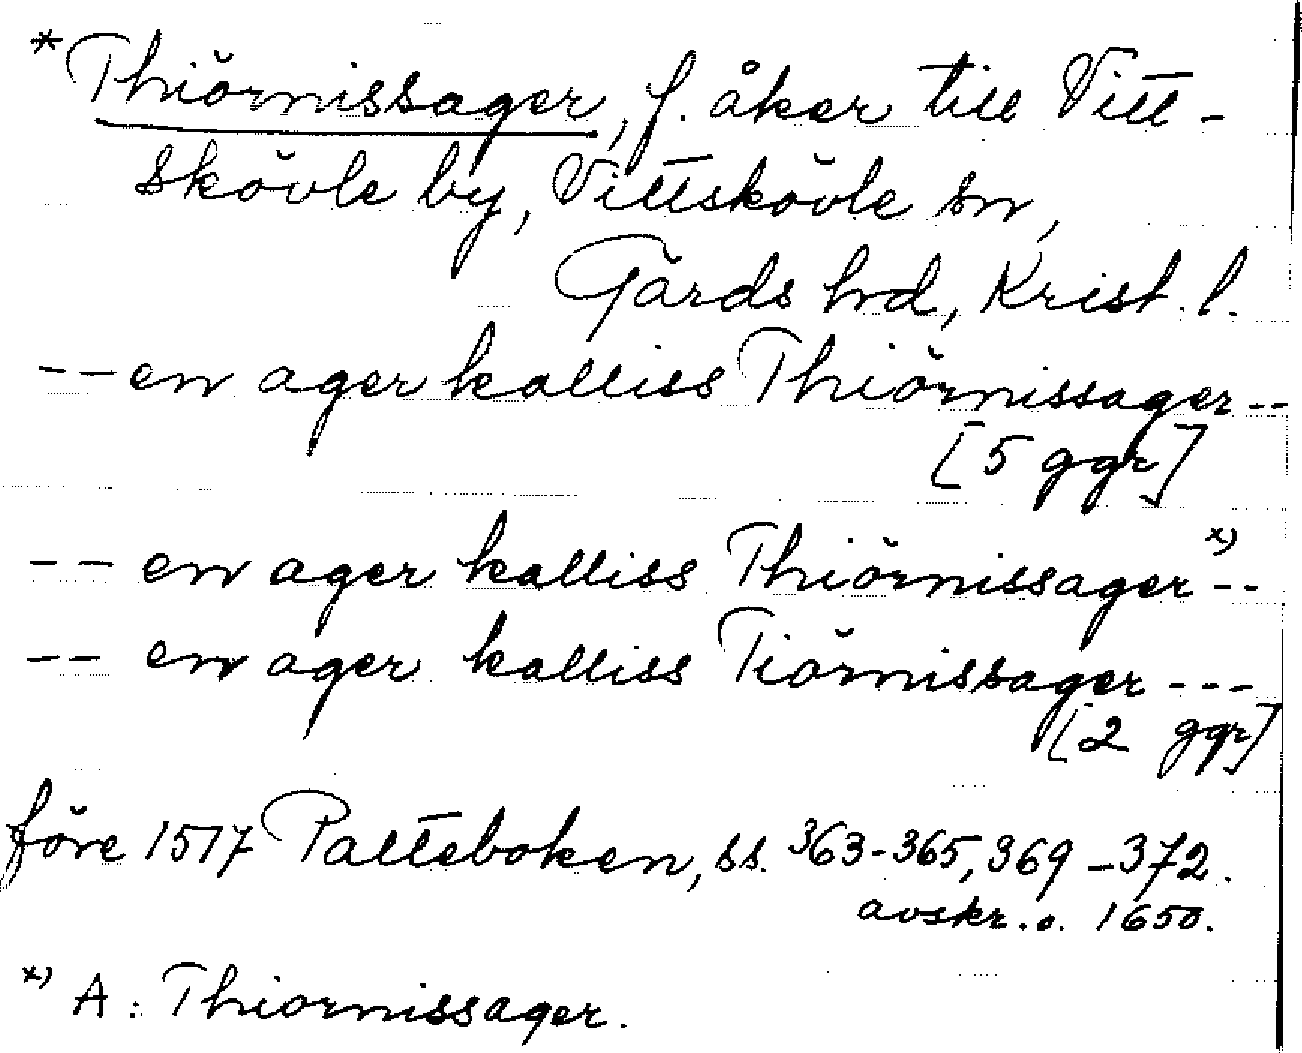 *Thiörnissager, f. åker till Vitt-
skövle by, Vittskövle sn,
Gärds hrd, Krist. l.
-- en ager kalliss Thiörnissager --
[5 ggr]
-- en ager kalliss Thiörnissager x) --
-- en ager kalliss Tiörnissager ---
[2 ggr]
före 1517 Palteboken, ss. 363-365, 369-372.
avskr. o. 1650.
x) A: Thiornissager.